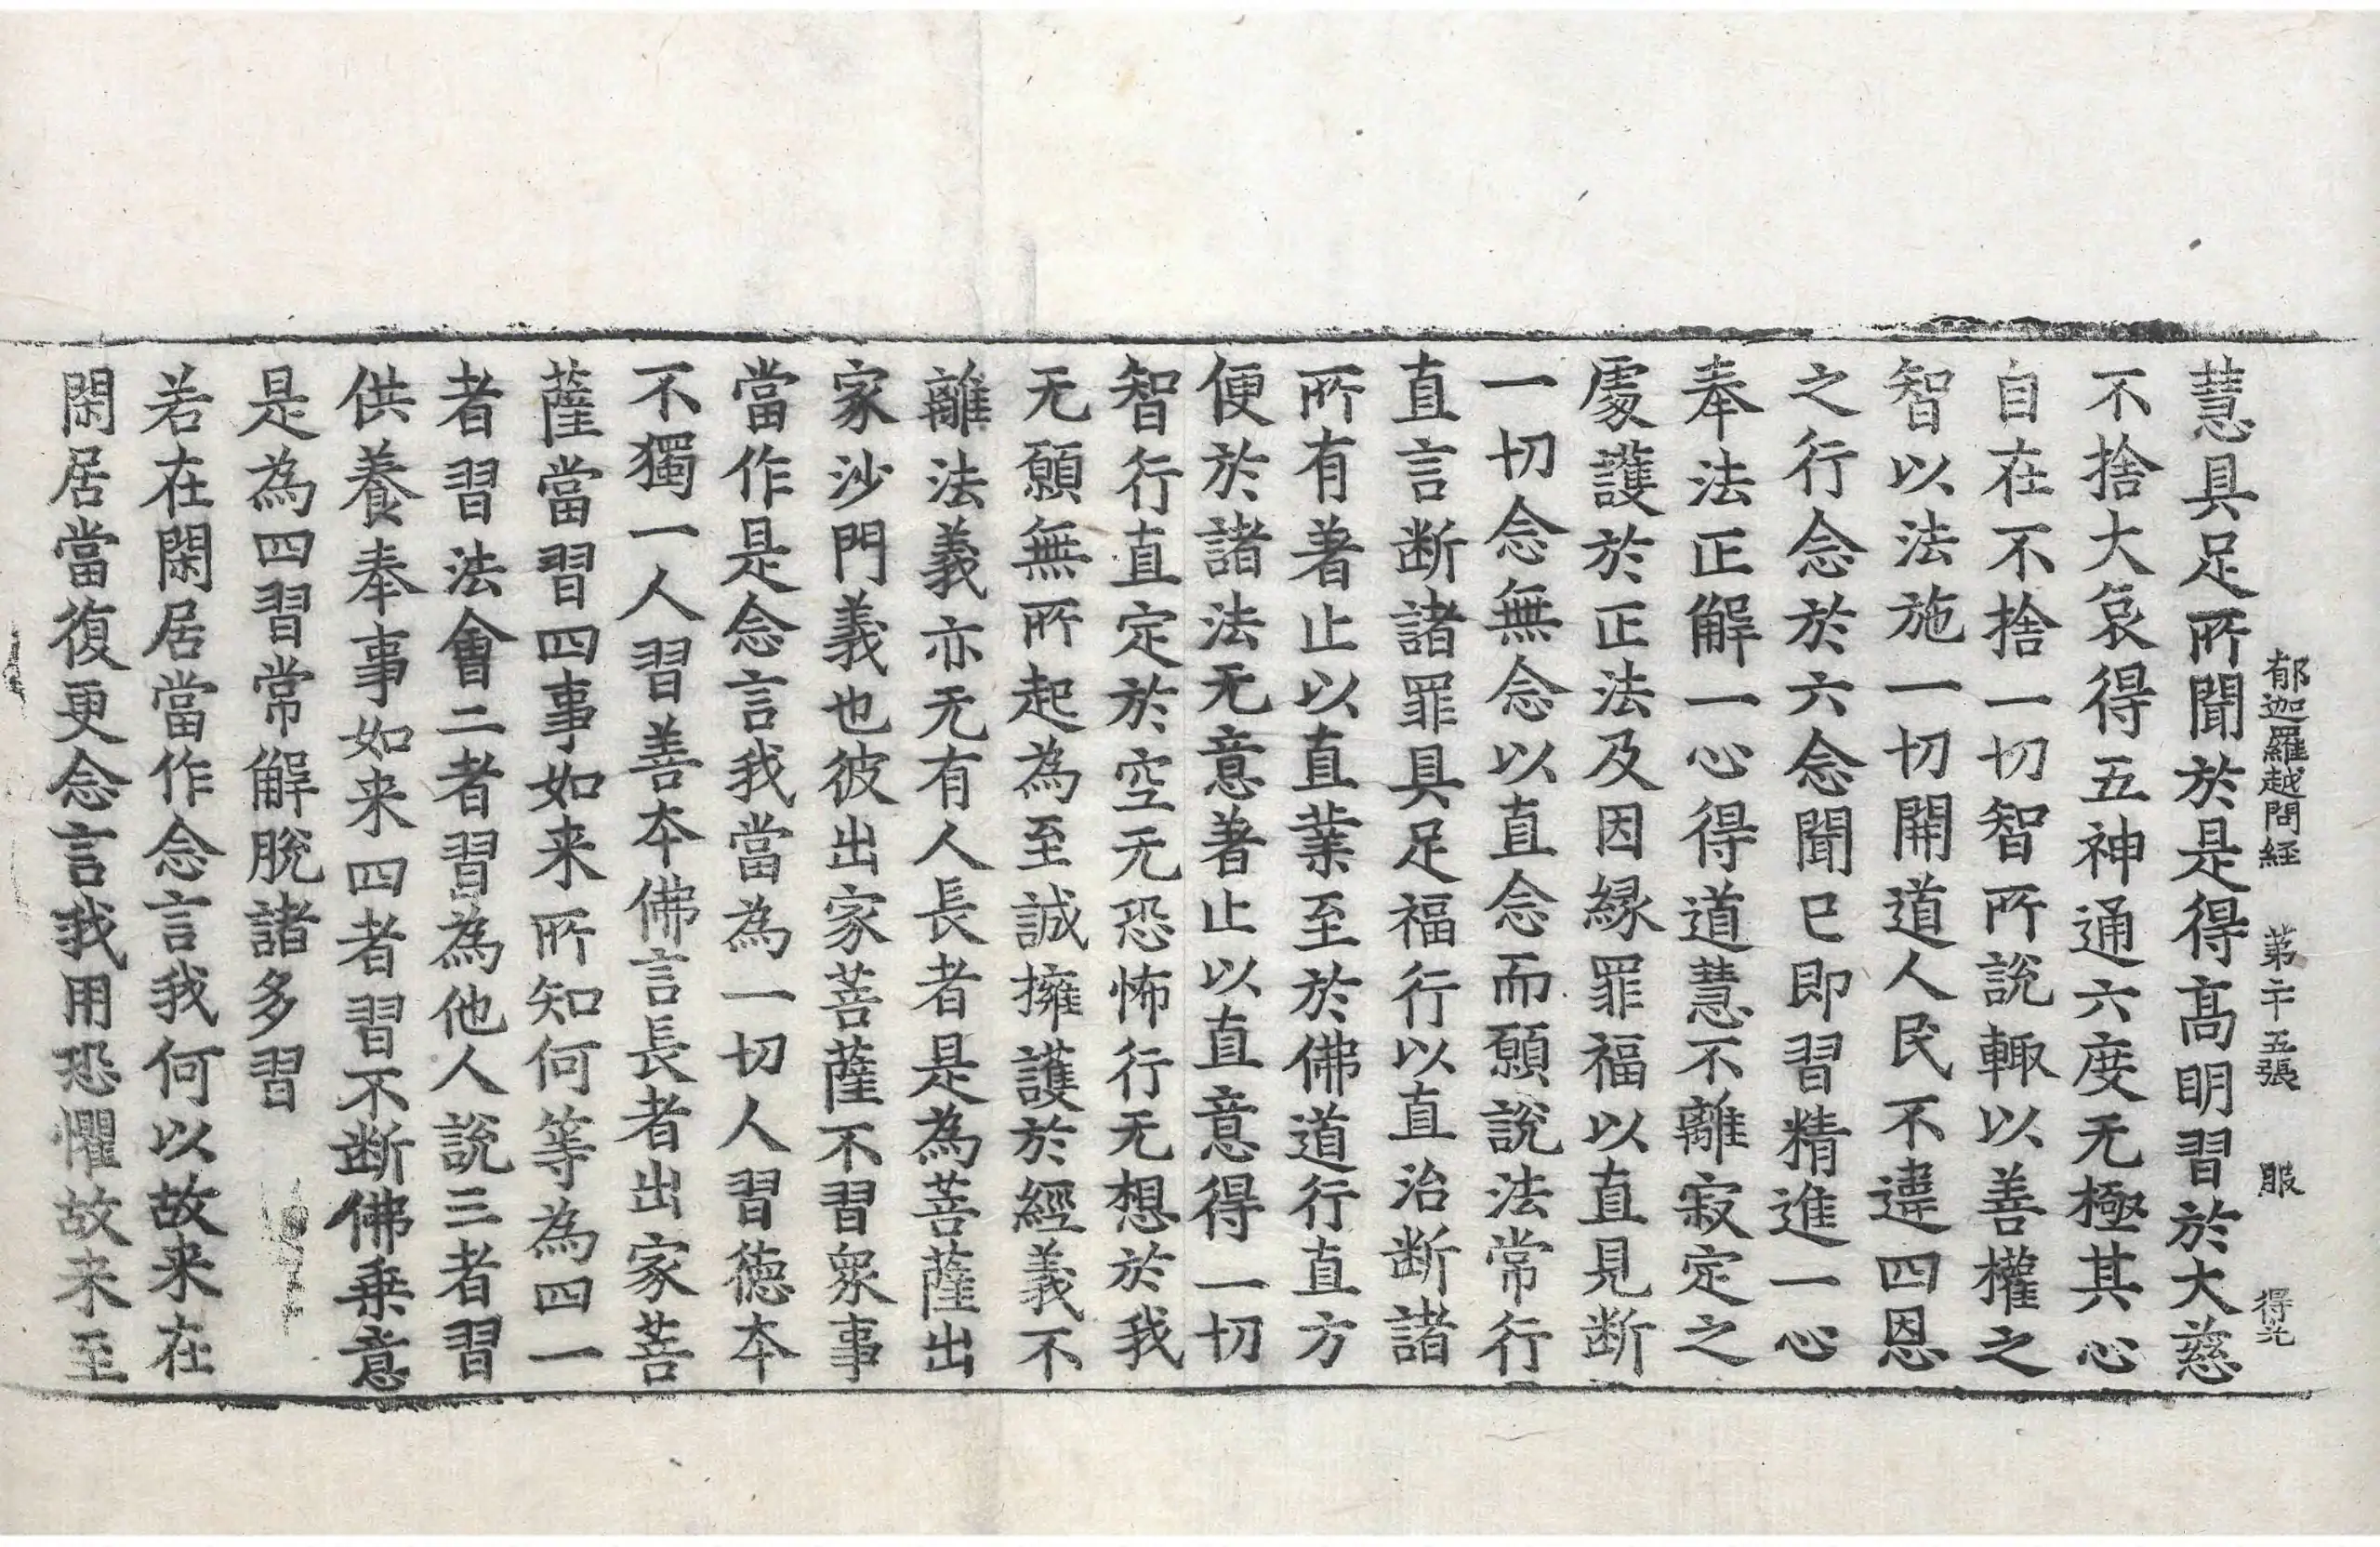 郁迦羅越問経 第二十五張 服 得光
慧具足所聞於是得髙明習於大慈
不捨大哀得五神通六度无極其心
自在不捨一切智所說輙以善權之
智以法施一切開道人民不違四恩
之行念於六念聞已即習精進一心
奉法正解一心得道慧不離寂定之
處護於正法及因緣罪福以直見断
一切念無念以直念而願說法常行
直言断諸罪具足福行以直治断諸
所有著止以直業至於佛道行直方
便於諸法无意著止以直意得一切
智行直定於空无恐怖行无想於我
无願無所起為至誠擁護於經義不
離法義亦无有人長者是為菩薩出
家沙門義也彼出家菩薩不習衆事
當作是念言我當為一切人習徳本
不獨一人習善本佛言長者出家菩
薩當習四事如来所知何等為四一
者習法會二者習為他人說三者習
供養奉事如来四者習不断佛乗意
是為四習常解脫諸多習
若在閑居當作念言我何以故来在
閑居當復更念言我用恐懼故来至